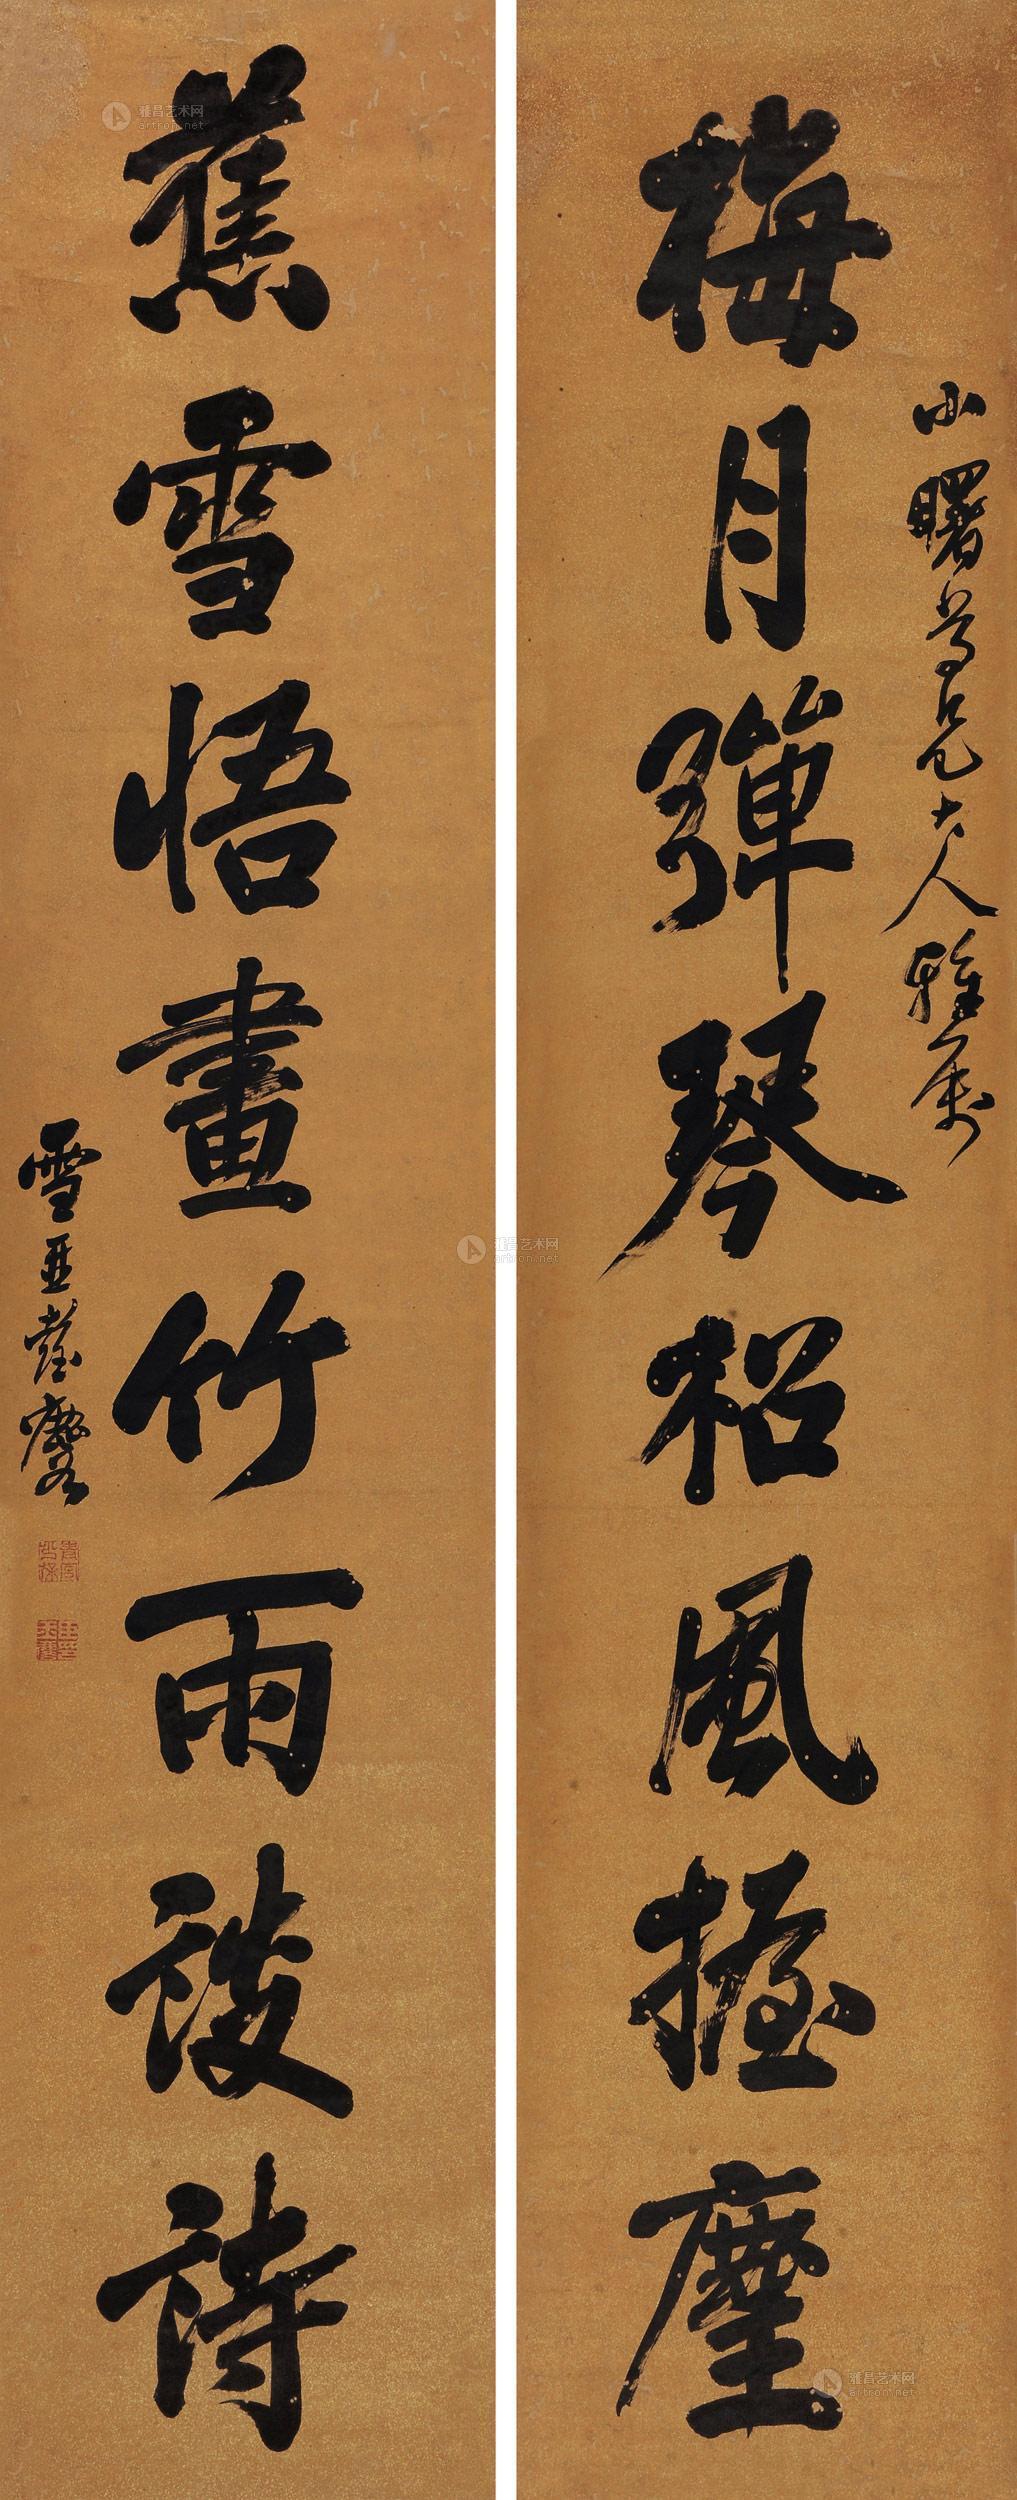 梅月彈琴松風握麈
小曙尊兄大人雅屬
蕉雪悟畫竹雨談詩
雪亞
雅昌艺术网
artron.net
雅昌艺术网
artron.net
雅昌艺术网
artron.net